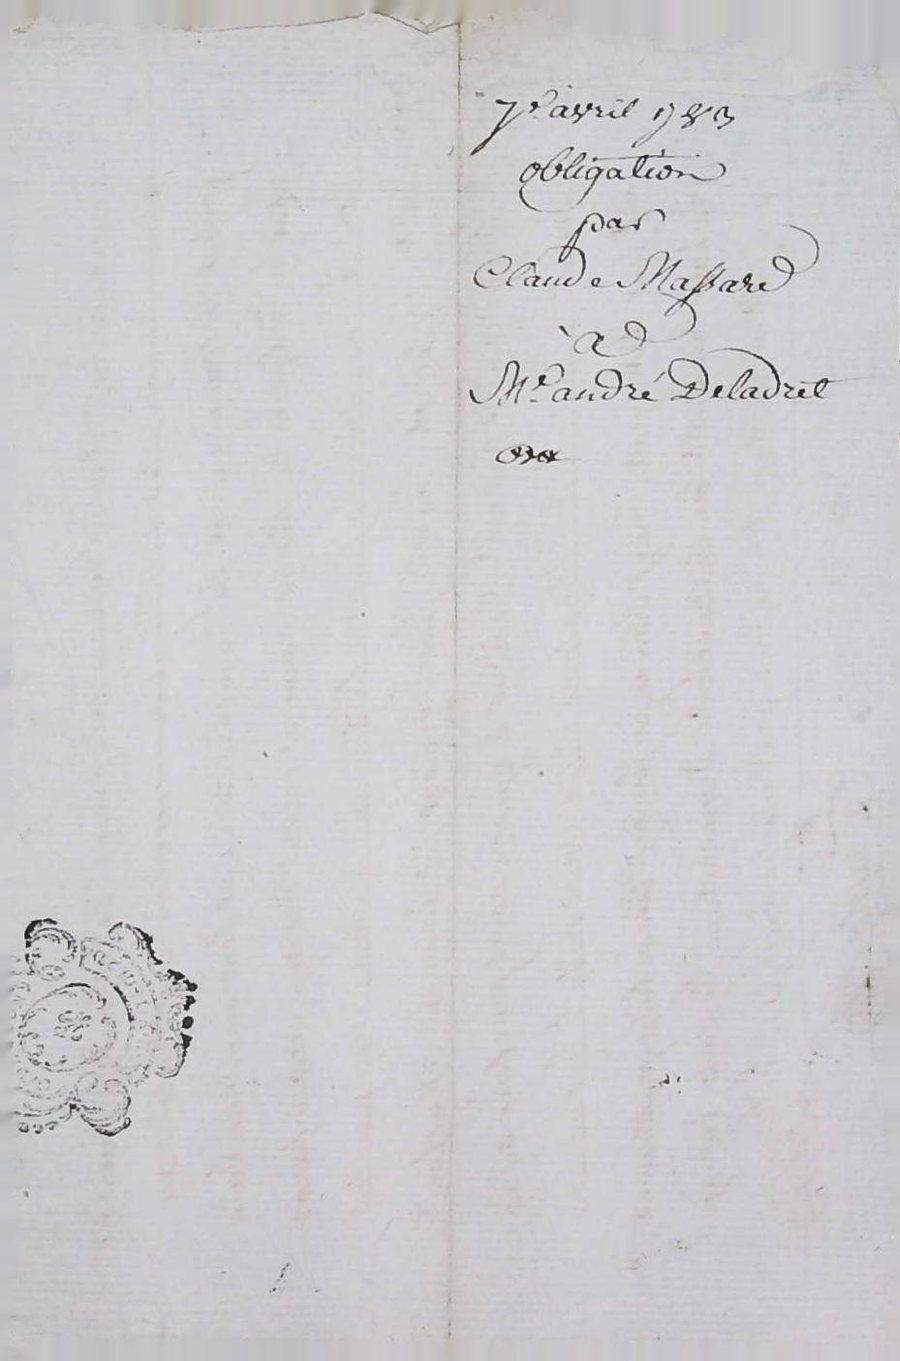 7e. avril 1783
obligation
par
Claude Massard
à
Me. andré Deladret